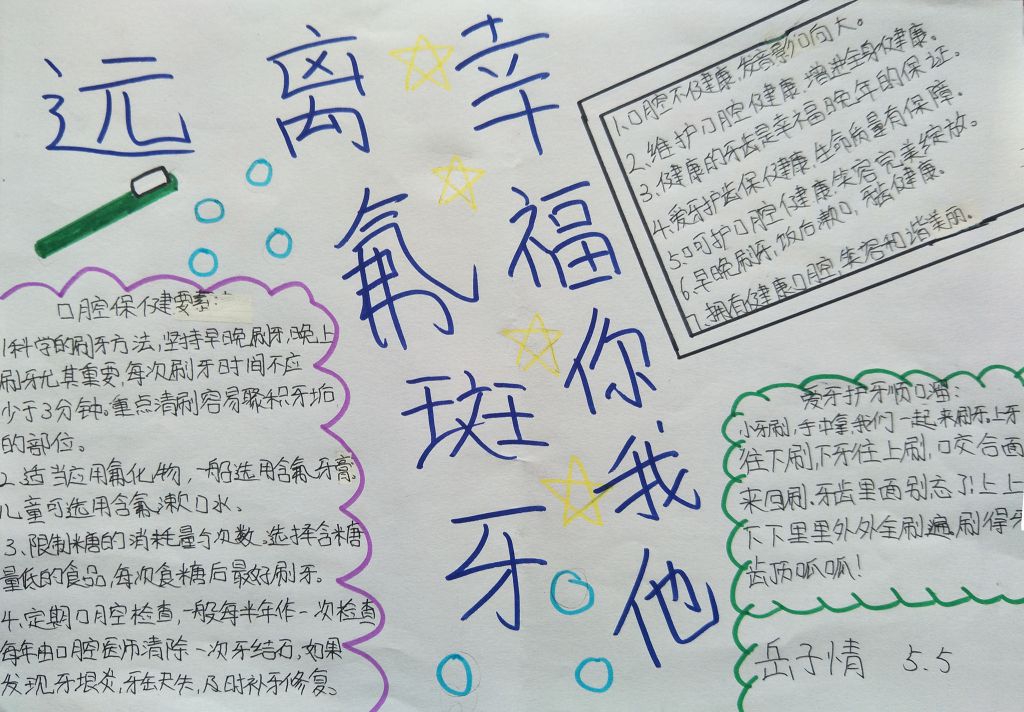 远离氟斑牙
幸福你我他
1、口腔不健康,发音影响大。
2、维护口腔健康,增进全身健康。
3、健康的牙齿是幸福晚年的保证。
4、爱牙护齿保健康,生命质量有保障。
5、呵护口腔健康,笑容完美绽放。
6、早晚刷牙,饭后漱口,健康。
7、拥有健康口腔,笑容和谐美丽。
口腔保健要素:
1科学的刷牙方法,坚持早晚刷牙,晚上
刷牙尤其重要,每次刷牙时间不应
少于3分钟。重点清刷容易聚积牙垢
的部位。
2、适当应用氟化物,一般选用含氟牙膏
儿童可选用含氟漱口水。
3、限制糖的消耗量与次数。选择含糖
量低的食品,每次食糖后最好刷牙。
4、定期口腔检查,一般每半年作一次检查
每年由口腔医师清除一次牙结石,如果
发现牙龈炎,牙缺失,及时补牙修复。
爱牙护牙顺口溜:
小牙刷,手中拿,我们一起来刷牙。上牙
往下刷,下牙往上刷,咬合面
来回刷,牙齿里面别忘了!上上
下下里里外外全刷遍,刷得牙
齿顶呱呱!
岳子情 5.5